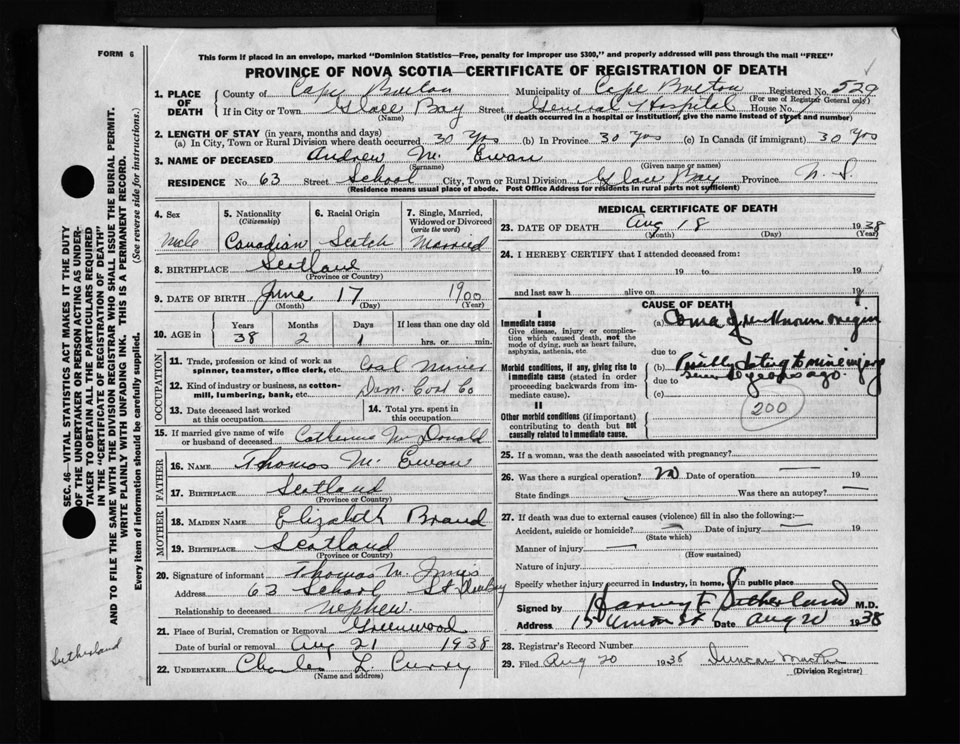 FORM 6
This form if placed in an envelope, marked "Dominion Statistics—Free, penalty for improper use $300," and properly addressed will pass through the mail "FREE"
PROVINCE OF NOVA SCOTIA—CERTIFICATE OF REGISTRATION OF DEATH
1. PLACE OF DEATH
County of Cape Breton Municipality of Cape Breton Registered No. 529
(For use of Registrar General only)
If in City or Town Glace Bay Street General Hospital House No.
(Name) (If death occurred in a hospital or institution, give the name instead of street and number)
2. LENGTH OF STAY (in years, months and days)
(a) In City, Town or Rural Division where death occurred 30 Yrs (b) In Province 30 Yrs (c) In Canada (if immigrant) 30 Yrs
3. NAME OF DECEASED Andrew Mc Ewan
(Surname) (Given name or names)
RESIDENCE No. 63 Street School City, Town or Rural Division Glace Bay Province N. S.
(Residence means usual place of abode. Post Office Address for residents in rural parts not sufficient)
4. Sex Male
5. Nationality (Citizenship) Canadian
6. Racial Origin Scotch
7. Single, Married, Widowed or Divorced (write the word) Married
8. BIRTHPLACE Scotland
(Province or Country)
9. DATE OF BIRTH June 17 1900
(Month) (Day) (Year)
10. AGE in Years Months Days If less than one day old
38 2 1 hrs. or min.
OCCUPATION
11. Trade, profession or kind of work as spinner, teamster, office clerk, etc. Coal Miner
12. Kind of industry or business, as cotton-mill, lumbering, bank, etc. Dom. Coal Co
13. Date deceased last worked at this occupation
14. Total yrs. spent in this occupation
15. If married give name of wife or husband of deceased Catherine McDonald
FATHER
16. NAME Thomas Mc Ewan
17. BIRTHPLACE Scotland
(Province or Country)
MOTHER
18. MAIDEN NAME Elizabeth Brand
19. BIRTHPLACE Scotland
(Province or Country)
20. Signature of informant Thomas M.
Address 63 School St
Relationship to deceased Nephew.
21. Place of Burial, Cremation or Removal Greenwood
Date of burial or removal Aug 21 1938
22. UNDERTAKER Charles L. Curry
(Name and address)
MEDICAL CERTIFICATE OF DEATH
23. DATE OF DEATH Aug 18 1938
(Month) (Day) (Year)
24. I HEREBY CERTIFY that I attended deceased from:
19 to 19
and last saw h alive on 19
CAUSE OF DEATH
I
Immediate cause
Give disease, injury or complication which caused death, not the mode of dying, such as heart failure, asphyxia, asthenia, etc.
(a) Coma of unknown origin
due to
Morbid conditions, if any, giving rise to immediate cause (stated in order proceeding backwards from immediate cause).
(b) to mine injury
due to years ago.
(c)
200
II
Other morbid conditions (if important) contributing to death but not causally related to immediate cause.
25. If a woman, was the death associated with pregnancy?
26. Was there a surgical operation? no Date of operation 19
State findings Was there an autopsy?
27. If death was due to external causes (violence) fill in also the following:—
Accident, suicide or homicide? Date of injury 19
(State which)
Manner of injury
(How sustained)
Nature of injury
Specify whether injury occurred in industry, in home, or in public place
Signed by Harvey F. Sutherland M.D.
Address Union St Date Aug 20 1938
28. Registrar's Record Number
29. Filed Aug 20 1938 Duncan
(Division Registrar)
SEC. 46—VITAL STATISTICS ACT MAKES IT THE DUTY
OF THE UNDERTAKER OR PERSON ACTING AS UNDER-
TAKER TO OBTAIN ALL THE PARTICULARS REQUIRED
IN THE "CERTIFICATE OF REGISTRATION OF DEATH"
AND TO FILE THE SAME WITH THE DIVISION REGISTRAR, WHO SHALL ISSUE THE BURIAL PERMIT.
WRITE PLAINLY WITH UNFADING INK. THIS IS A PERMANENT RECORD.
Every item of information should be carefully supplied. (See reverse side for instructions.)
Sutherland